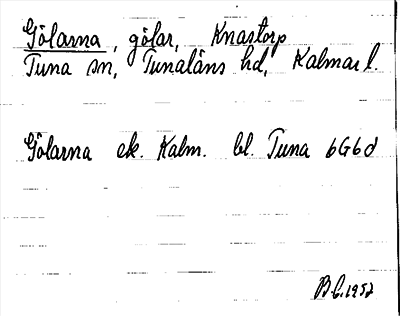 Gölarna, gölar, Knastorp
Tuna sn, Tunaläns hd, Kalmar l.
Gölarna ek. Kalm. bl. Tuna 6G6d
B.C. 1952